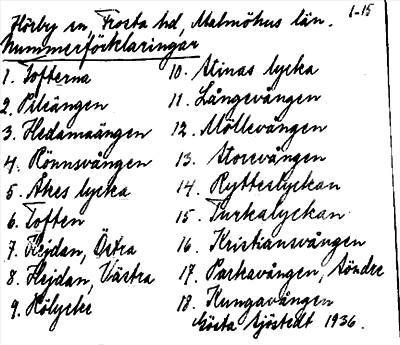 Hörby sn, Frosta hd, Malmöhus län.
1-15
Nummerförklaringar
1. Tofterna
2. Pileängen
3. Hedamaängen
4. Rönnsvången
5. Åkes lycka
6. Toften
7. Hejdan, Östra
8. Hejdan, Västra
9. Hölycke
10. Stinas lycka
11. Långevången
12. Möllevången
13. Storevången
14. Rytteslyckan
15. Turkalyckan
16. Kristiansvången
17. Parkavången, Söndre
18. Kungavången
Gösta Sjöstedt 1936.